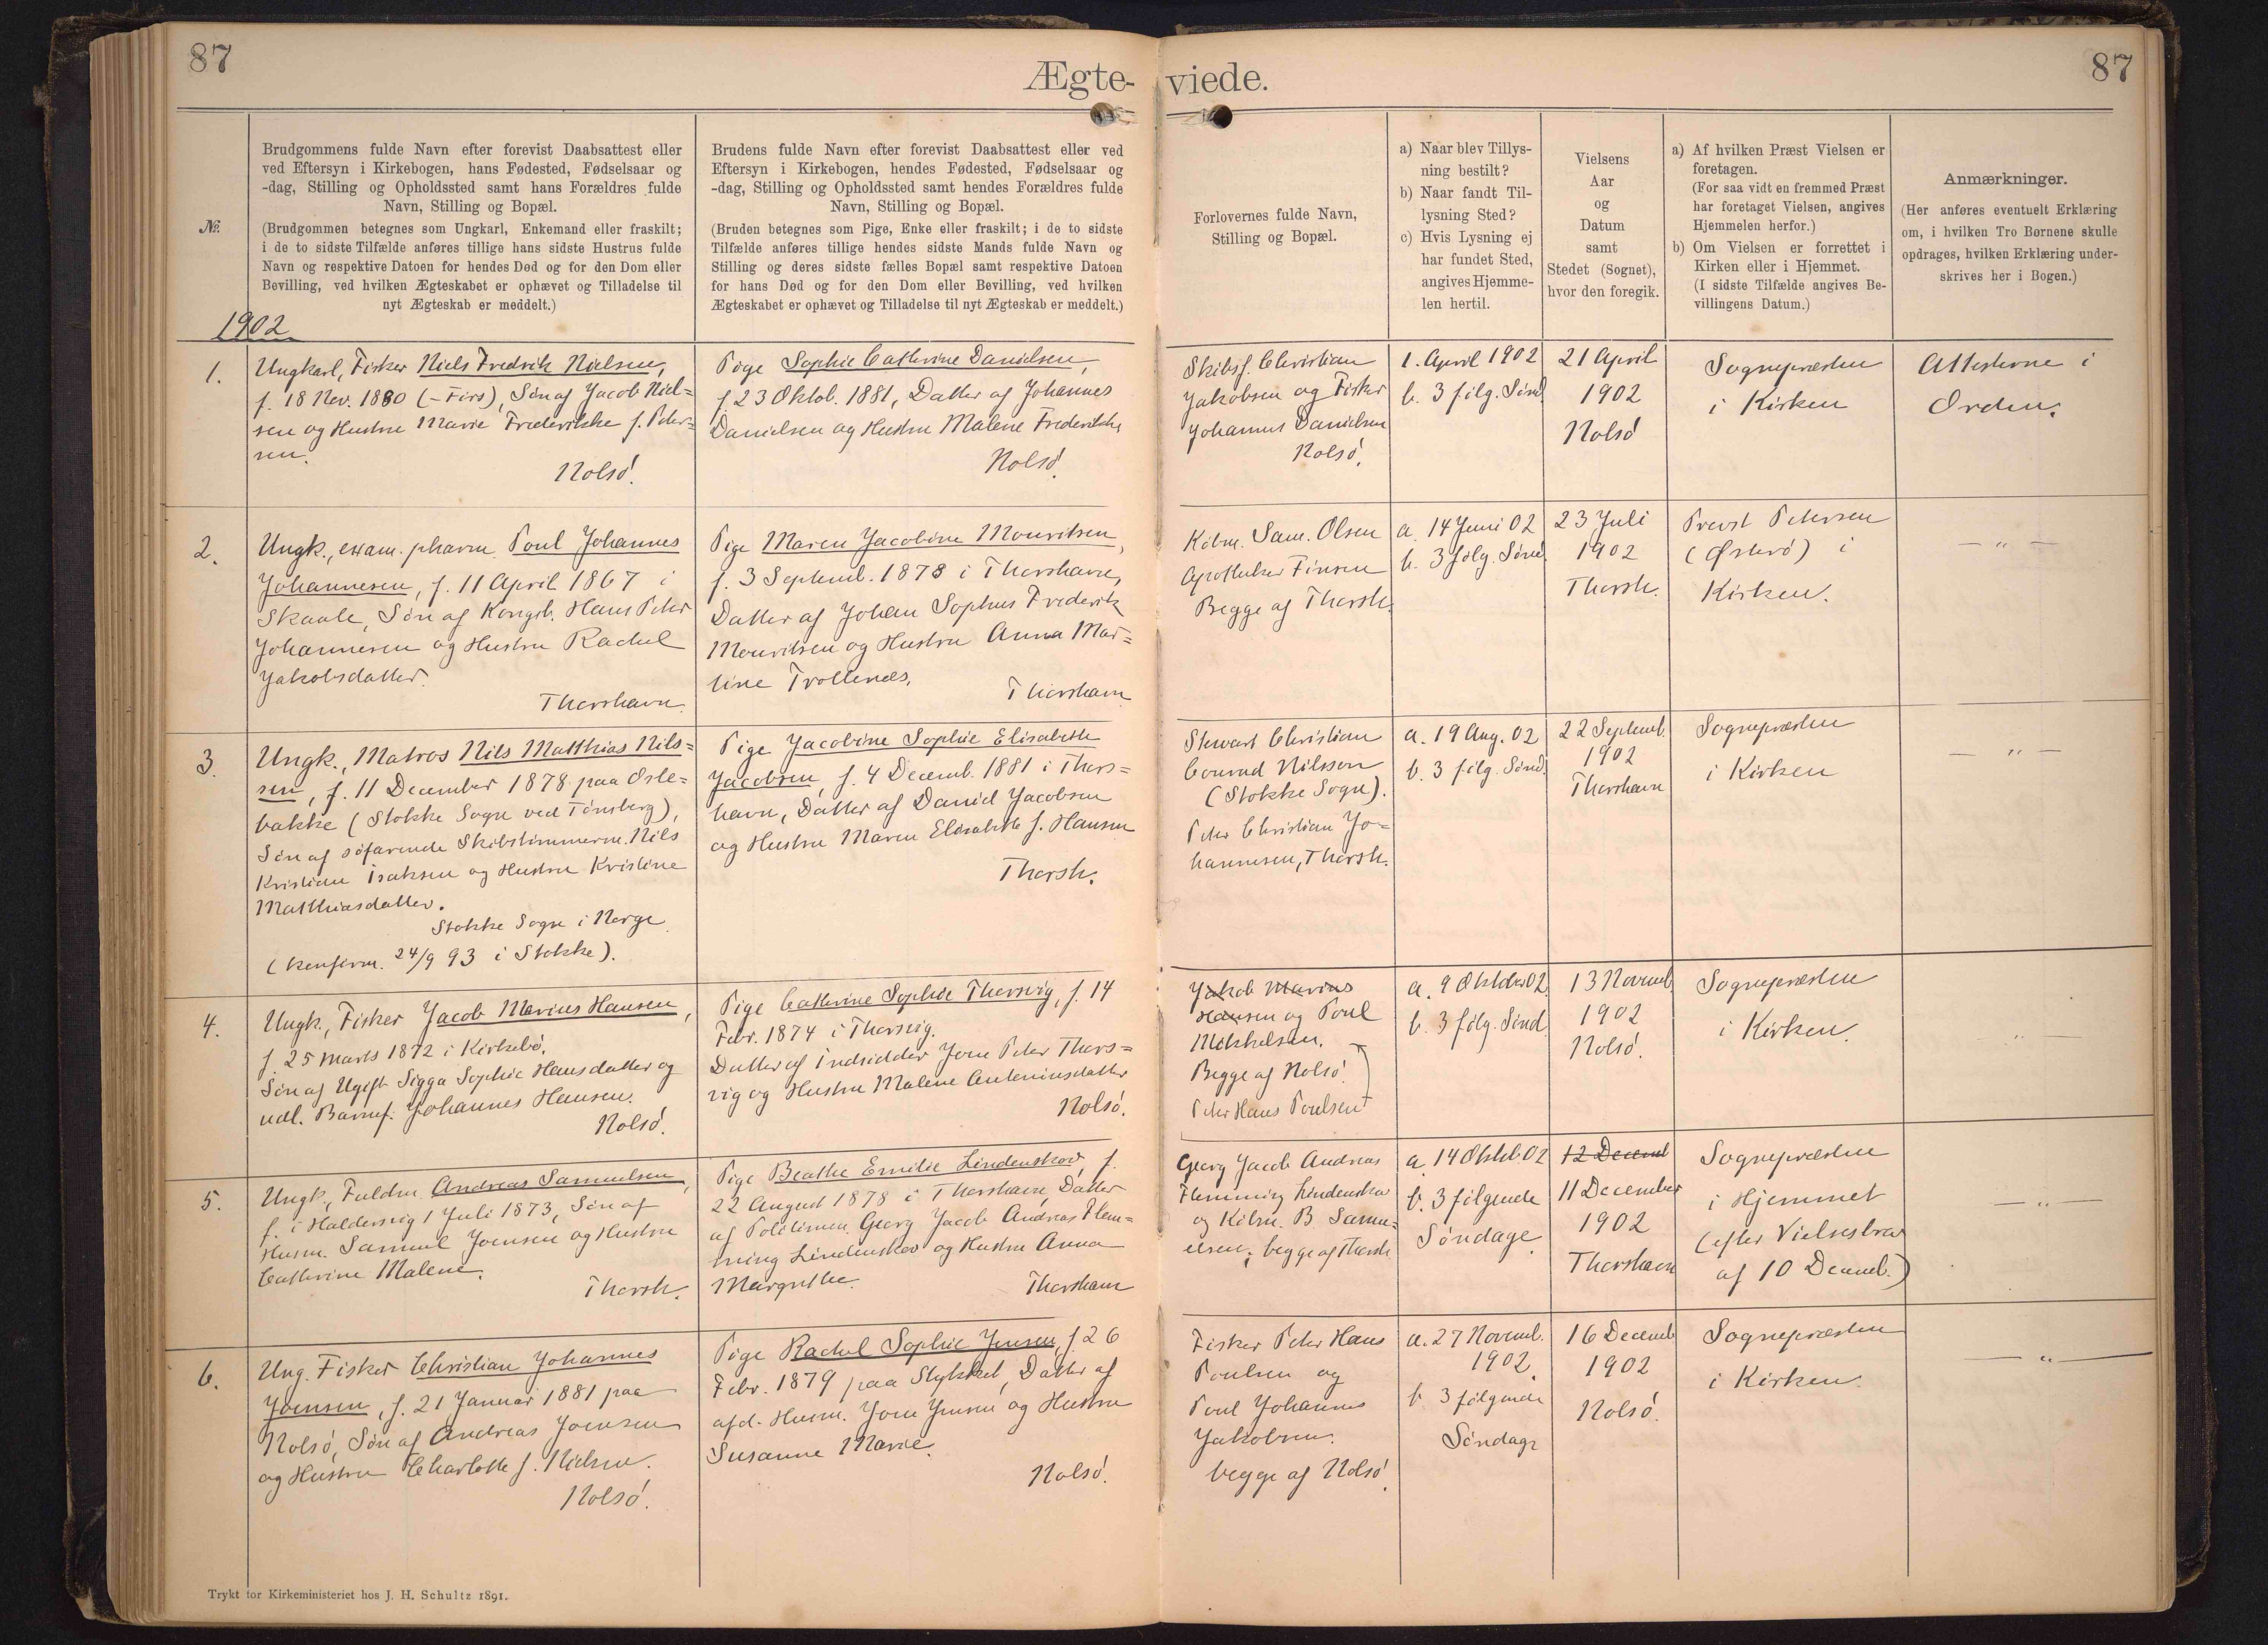 87
Ægte-
viede.
87
№
Brudgommens fulde Navn efter forevist Daabsattest eller
ved Eftersyn i Kirkebogen, hans Fødested, Fødselsaar og
-dag, Stilling og Opholdssted samt hans Forældres fulde
Navn, Stilling og Bopæl.
(Brudgommen betegnes som Ungkarl, Enkemand eller fraskilt;
i de to sidste Tilfælde anføres tillige hans sidste Hustrus fulde
Navn og respektive Datoen for hendes Død og for den Dom eller
Bevilling, ved hvilken Ægteskabet er ophævet og Tilladelse til
nyt Ægteskab er meddelt.)
Brudens fulde Navn efter forevist Daabsattest eller ved
Eftersyn i Kirkebogen, hendes Fødested, Fødselsaar og
-dag, Stilling og Opholdssted samt hendes Forældres fulde
Navn, Stilling og Bopæl.
(Bruden betegnes som Pige, Enke eller fraskilt; i de to sidste
Tilfælde anføres tillige hendes sidste Mands fulde Navn og
Stilling og deres sidste fælles Bopæl samt respektive Datoen
for hans Død og for den Dom eller Bevilling, ved hvilken
Ægteskabet er ophævet og Tilladelse til nyt Ægteskab er meddelt.)
Forlovernes fulde Navn,
Stilling og Bopæl.
a) Naar blev Tillys-
ning bestilt?
b) Naar fandt Til-
lysning Sted?
c) Hvis Lysning ej
har fundet Sted,
angives Hjemme-
len hertil.
Vielsens
Aar
og
Datum
samt
Stedet (Sognet),
hvor den foregik.
a) Af hvilken Præst Vielsen er
foretagen.
(For saa vidt en fremmed Præst
har foretaget Vielsen, angives
Hjemmelen herfor.)
b) Om Vielsen er forrettet i
Kirken eller i Hjemmet.
(I sidste Tilfælde angives Be-
villingens Datum.)
Anmærkninger.
(Her anføres eventuelt Erklæring
om, i hvilken Tro Børnene skulle
opdrages, hvilken Erklæring under-
skrives her i Bogen.)
1902
1.
Ungkarl, Fisker Niels Fredrik Nielsen,
f. 18 Nov. 1880 (-Firs), Søn af Jacob Niel=
sen og Hustru Marie Frederikke f. Peter=
sen.
Nolsö.
Pige Sophie Cathrine Danielsen,
f. 23 Oktob. 1881, Datter af Johannes
Danielsen og Hustru Malene Frederikke
Nolsö.
Skibsf. Christian
Jakobsen og Fisker
Johannes Danielsen
Nolsö.
1. April 1902
b. 3 følg. Sönd.
21 April
1902
Nolsö
Sognepræsten
i Kirken
Attesterne i
Orden.
2.
Ungk., exam. pharm. Poul Johannes
Johannesen, f. 11 April 1867 i
Skaale, Søn af Kongsb. Hans Peter
Johannesen og Hustru Rachel
Jakobsdatter.
Thorshavn.
Pige Maren Jacobine Mouritsen,
f. 3 Septemb. 1878 i Thorshavn,
Datter af Johan Sophus Frederik
Mouritsen og Hustru Anna Mar=
tine Trollenæs.
Thorshavn
Köbm. Sam. Olsen
Apotheker Finsen
Begge af Thorsh.
a. 14 Juni 02
b. 3 følg. Sönd.
23 Juli
1902
Thorsh.
Provst Petersen
(Østerö) i
Kirken.
— " —
3.
Ungk., Matros Nils Matthias Nils=
sen, f. 11 December 1878 paa Osle=
bakke (Stokke Sogn ved Tönsberg),
Søn af söfarende Skibstimmerm. Nils
Kristian Isaksen og Hustru Kristine
Matthiasdatter.
Stokke Sogn i Norge
(Konfirm. 24/9 93 i Stokke).
Pige Jacobine Sophie Elisabeth
Jacobsen, f. 4 Decemb. 1881 i Thors=
havn, Datter af Daniel Jacobsen
og Hustru Maren Elisabeth f. Hansen
Thorsh.
Stewart Christian
Conrad Nilsson
(Stokke Sogn).
Peter Christian Jo=
hannesen, Thorsh.
a. 19 Aug. 02
b. 3 følg. Sönd.
22 Septemb.
1902
Thorshavn
Sognepræsten
i Kirken
— " —
4.
Ungk., Fisker Jacob Marius Hansen,
f. 25 Marts 1872 i Kirkebö.
Søn af Ugift Sigga Sophie Hansdatter og
udl. Barnef. Johannes Hansen.
Nolsö.
Pige Cathrine Sophie Thorsvig, f. 14
Febr. 1874 i Thorsvig.
Datter af Indsidder Joen Peter Thors=
vig og Hustru Malene Antoniusdatter
Nolsö.
Jakob Marius
Hansen og Poul
Mikkelsen.
Begge af Nolsö.
Peter Hans Poulsen
a. 9 Oktober 02.
b. 3 følg. Sönd
13 Novemb.
1902
Nolsö.
Sognepræsten
i Kirken.
— " —
5.
Ungk., Fuldm. Andreas Samuelsen,
f. i Haldersvig 1 Juli 1873, Søn af
Husm. Samuel Joensen og Hustru
Cathrine Malene.
Thorsh.
Pige Beathe Emilie Lindenskov, f.
22 August 1878 i Thorshavn, Datter
af Politimen. Georg Jacob Andreas Flem=
ming Lindenskov og Hustru Anna
Margrethe.
Thorshavn
Georg Jacob Andreas
Flemming Lindenskov
og Köbm. B. Samu=
elsen, begge af Thorsh
a. 14 Oktob. 02
b. 3 følgende
Söndage
12 Decemb
11 December
1902
Thorshavn
Sognepræsten
i Hjemmet
(efter Vielsesbrev
af 10 Decemb.)
— " —
6.
Ung. Fisker Christian Johannes
Joensen, f. 21 Januar 1881 paa
Nolsö, Søn af Andreas Joensen
og Hustru Charlotte f. Nielsen.
Nolsö.
Pige Rachel Sophie Jensen, f. 26
Febr. 1879 paa Stykket, Datter af
afd. Husm. Joen Jensen og Hustru
Susanne Marie.
Nolsö.
Fisker Peter Hans
Poulsen og
Poul Johannes
Jakobsen.
begge af Nolsö.
a. 27 Novemb.
1902.
b. 3 følgende
Söndage
16 Decemb
1902
Nolsö.
Sognepræsten
i Kirken.
— " —
Trykt for Kirkeministeriet hos J. H. Schultz 1891.